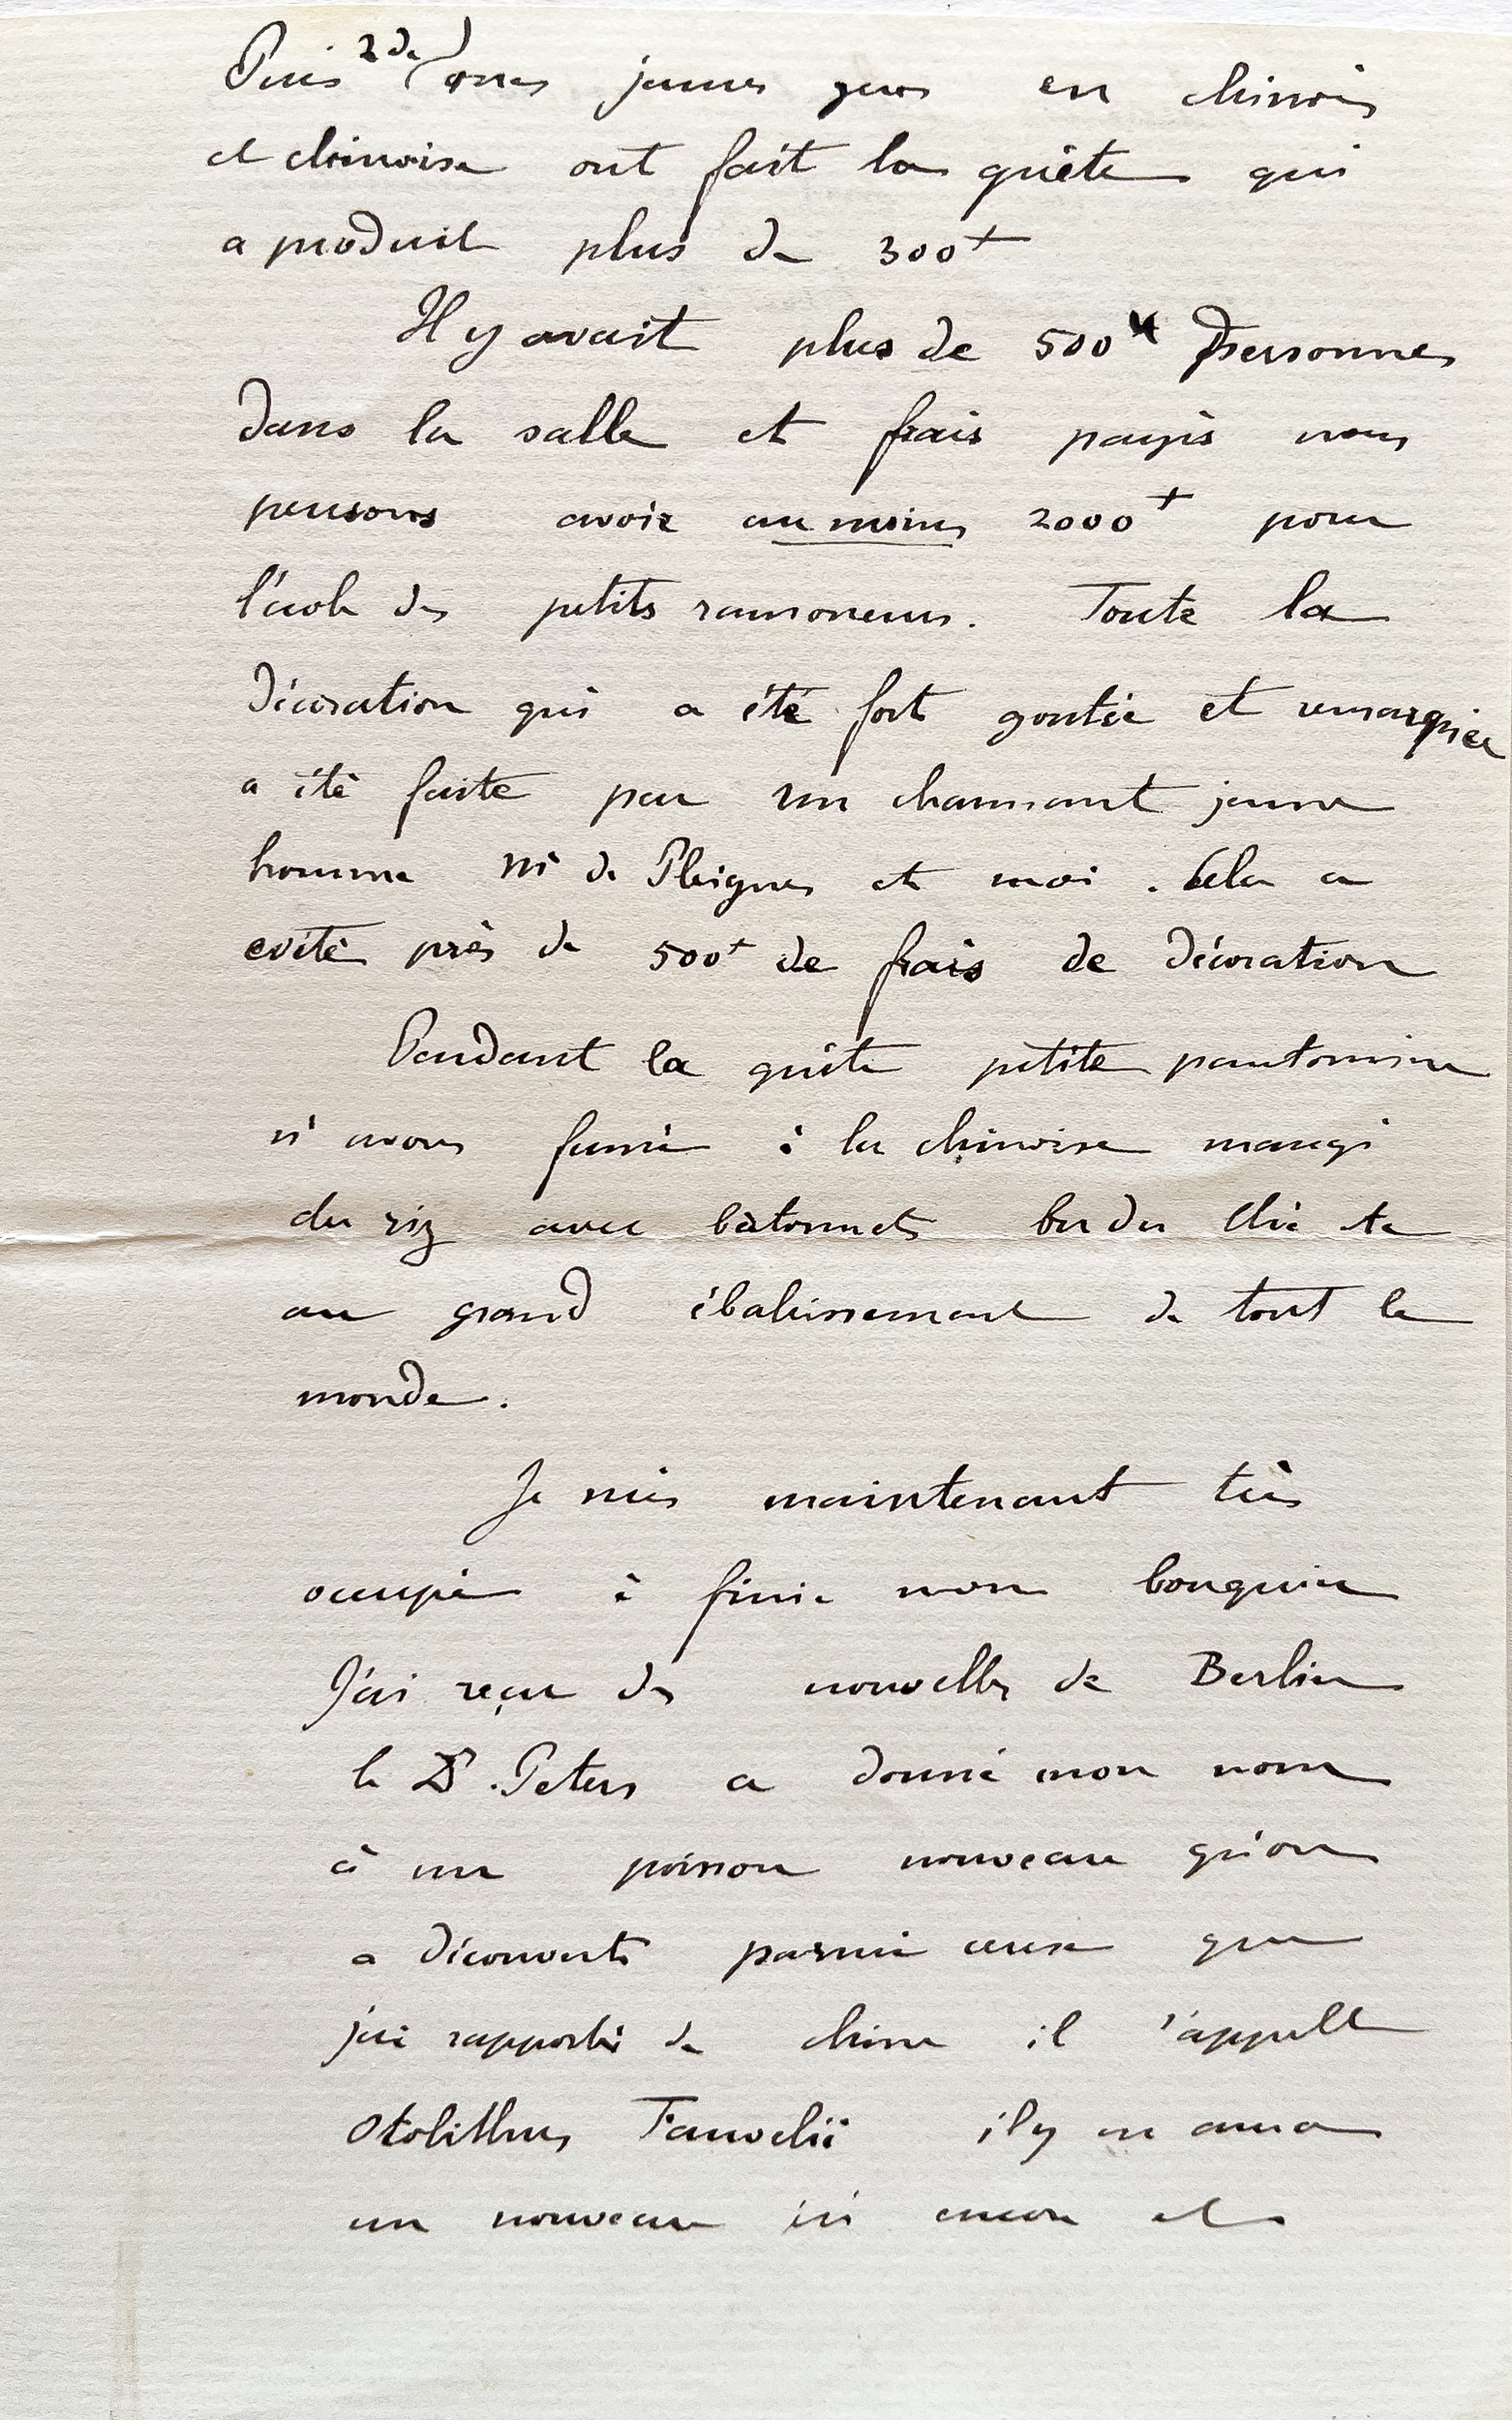 Puis 2 de mes jeunes gens en chinois
et chinoise ont fait la quête qui
a produit plus de 300+
Il y avait plus de 500 personnes
dans la salle et frais payés nous
pensons avoir au moins 2000+ pour
l'école des petits ramoneurs. Toute la
décoration qui a été fort goutée et remarquée
a été faite par un charmant jeune
homme Mr de et moi. Cela a
evité près de 500+ de frais de décoration
Pendant la quête petite pantomime
ns avons fumé à la chinoise mangé
du riz avec batonnets bu du thé etc
au grand ébahissement de tout le
monde.
Je suis maintenant très
occupé à finir mon bouquin
J'ai reçu des nouvelles de Berlin
le Dr. Peters a donné mon nom
à un poisson nouveau qu'on
a découvert parmi ceux que
j'ai rapportés de chine il s'appelle
Otolithus Fauvelii il y en aura
un nouveau ici encore et